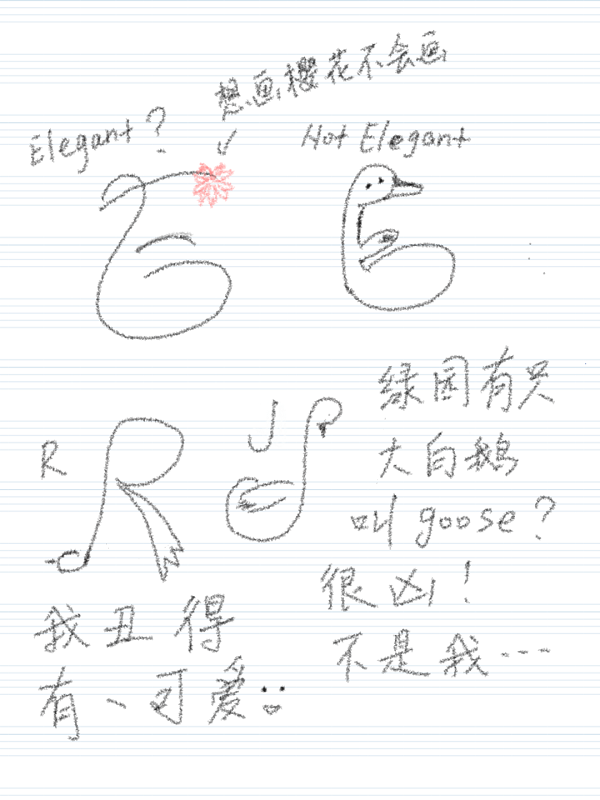 想画樱花不会画
Elegant?
Not Elegant
绿园有只
大白鹅
叫 goose?
很凶!
不是我···
R
J
我丑得
有、可爱